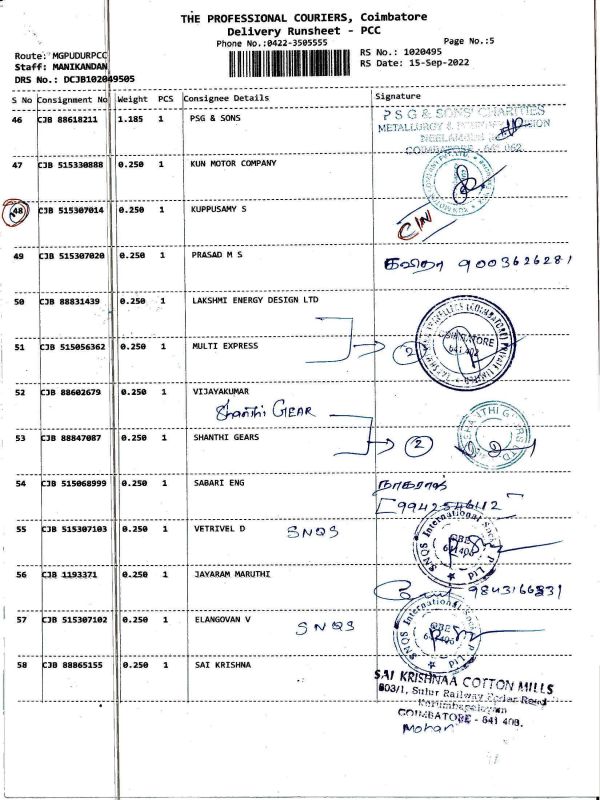 THE PROFESSIONAL COURIERS, Coimbatore
Delivery Runsheet - PCC
Phone No.:0422-3505555
Page No.:5
Route: MGPUDURPCC
RS No.: 1020495
Staff: MANIKANDAN
RS Date: 15-Sep-2022
DRS No.: DCJB102049505
S No Consignment No Weight PCS Consignee Details Signature
46 CJB 88618211 1.185 1 PSG & SONS
P S G & SONS' CHARITIES
METALLURGY & DIVISION
COIMBATORE - 641 062
47 CJB 515330888 0.250 1 KUN MOTOR COMPANY
48 CJB 515307014 0.250 1 KUPPUSAMY S
C/N
49 CJB 515307020 0.250 1 PRASAD M S
கவிதா 9003626281
50 CJB 88831439 0.250 1 LAKSHMI ENERGY DESIGN LTD
51 CJB 515056362 0.250 1 MULTI EXPRESS
2
COIMBATORE
641 402
52 CJB 88602679 0.250 1 VIJAYAKUMAR
Shanthi GEAR
53 CJB 88847087 0.250 1 SHANTHI GEARS
2
54 CJB 515068999 0.250 1 SABARI ENG
நாகராஜ்
9942546112
55 CJB 515307103 0.250 1 VETRIVEL D
SNQS
SNQS International Socks P Ltd
56 CJB 1193371 0.250 1 JAYARAM MARUTHI
9843166831
57 CJB 515307102 0.250 1 ELANGOVAN V
SNQS
SNQS International Socks P Ltd
58 CJB 88865155 0.250 1 SAI KRISHNA
SAI KRISHNAA COTTON MILLS
803/1, Sulur Railway Feder Road
Karumbapalayam
COIMBATORE - 641 408.
Mohan